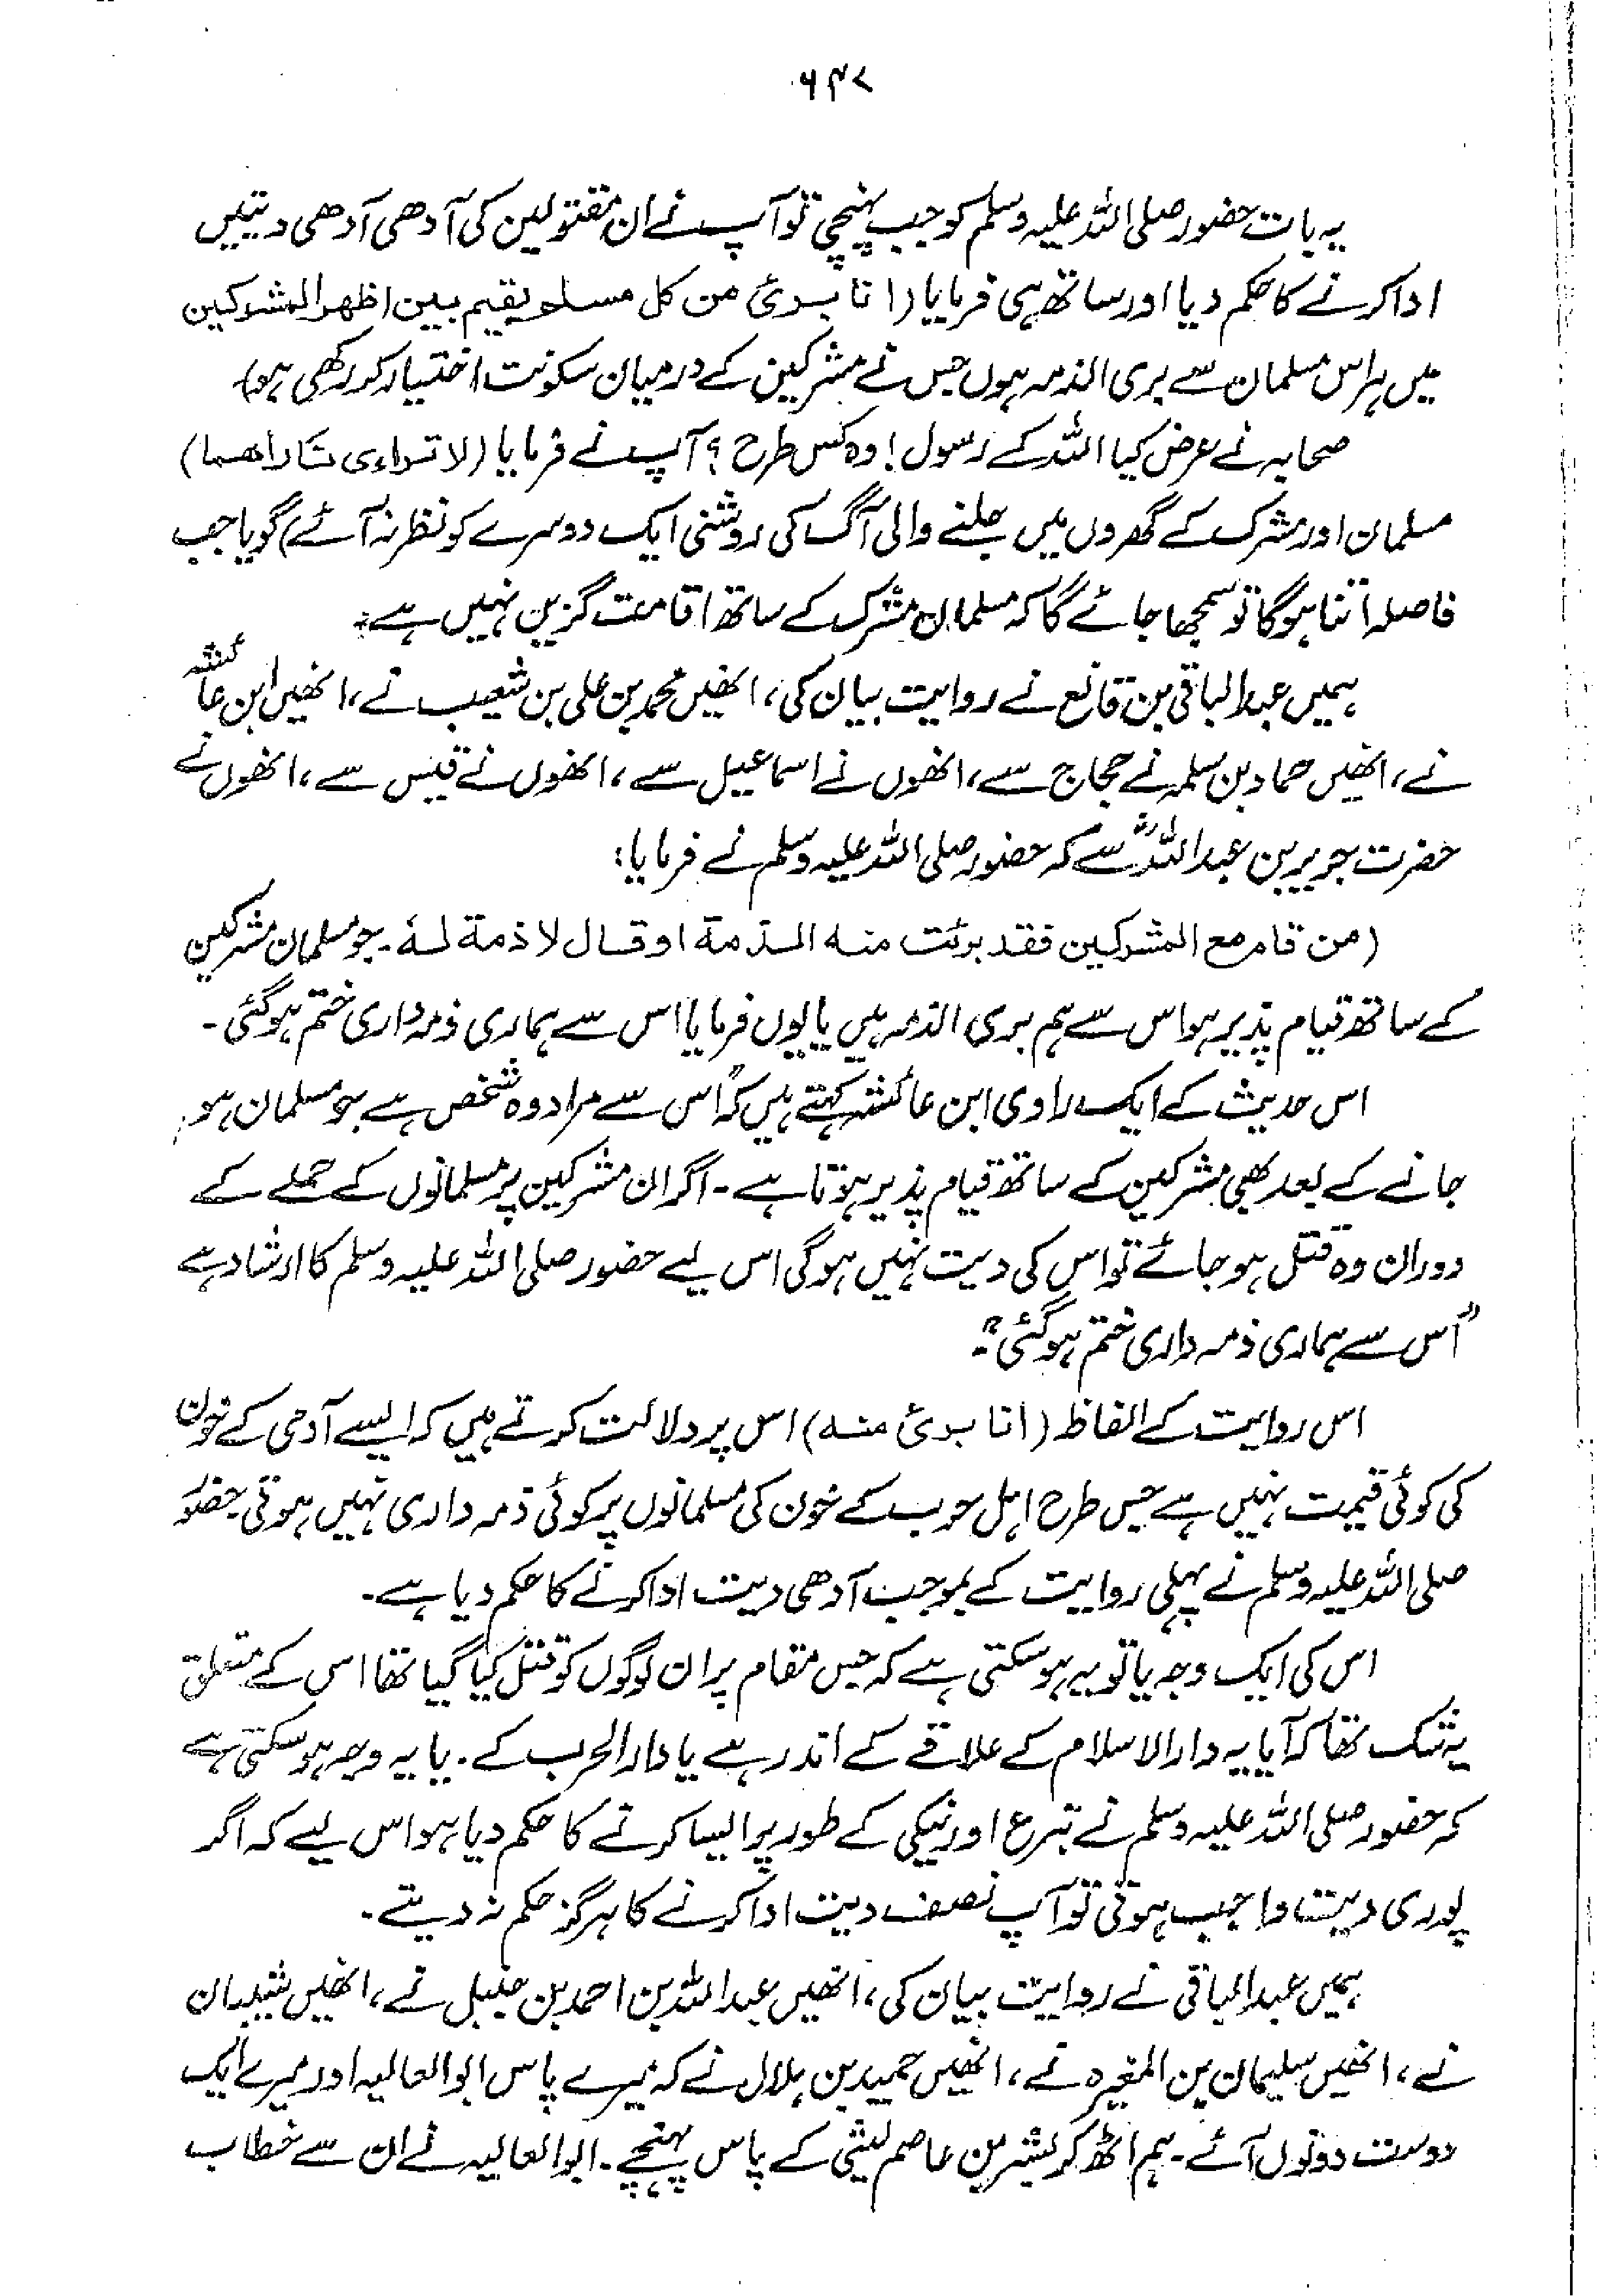 ۶۴۷
یہ بات حضور صلی اللہ علیہ وسلم کو جب پہنچی تو آپ نے ان مقتولین کی آدھی آدھی دیتیں
ادا کرنے کا حکم دیا اور ساتھ ہی فرمایا (انا بریٔ من کل مسلم یقیم بین اظھر المشرکین
میں ہر اس مسلمان سے بری الذمہ ہوں جس نے مشرکین کے درمیان سکونت اختیار کر رکھی ہو)
صحابہ نے عرض کیا اللہ کے رسول! وہ کس طرح؟ آپ نے فرمایا (لا تراءی ناراھما)
مسلمان اور مشرک کے گھروں میں جلنے والی آگ کی روشنی ایک دوسرے کو نظر نہ آئے) گویا جب
فاصلہ اتنا ہوگا تو سمجھا جائے گا کہ مسلمان مشرک کے ساتھ اقامت گزین نہیں ہے۔
ہمیں عبدالباقی بن قانع نے روایت بیان کی، انھیں محمد بن علی بن شعیب نے، انھیں ابن عائشہ
نے، انھیں حماد بن سلمہ نے حجاج سے، انھوں نے اسماعیل سے، انھوں نے قیس سے، انھوں نے
حضرت جریر بن عبداللہؓ سے کہ حضور صلی اللہ علیہ وسلم نے فرمایا:
(من قام مع المشرکین فقد برئت منہ الذمۃ او قال لا ذمۃ لہ۔ جو مسلمان مشرکین
کے ساتھ قیام پذیر ہو اس سے ہم بری الذمہ ہیں یا یوں فرمایا اس سے ہماری ذمہ داری ختم ہوگئی۔
اس حدیث کے ایک راوی ابن عائشہ کہتے ہیں کہ "اس سے مراد وہ شخص ہے جو مسلمان ہو
جانے کے بعد بھی مشرکین کے ساتھ قیام پذیر ہوتا ہے۔ اگر ان مشرکین پر مسلمانوں کے حملے کے
دوران وہ قتل ہو جائے تو اس کی دیت نہیں ہوگی اس لیے حضور صلی اللہ علیہ وسلم کا ارشاد ہے
"اس سے ہماری ذمہ داری ختم ہوگئی"۔
اس روایت کے الفاظ (انا بریٔ منہ) اس پر دلالت کرتے ہیں کہ ایسے آدمی کے خون
کی کوئی قیمت نہیں ہے جس طرح اہل حرب کے خون کی مسلمانوں پر کوئی ذمہ داری نہیں ہوتی۔ حضور
صلی اللہ علیہ وسلم نے پہلی روایت کے بموجب آدھی دیت ادا کرنے کا حکم دیا ہے۔
اس کی ایک وجہ یا تو یہ ہوسکتی ہے کہ جس مقام پر ان لوگوں کو قتل کیا گیا تھا اس کے متعلق
یہ شک تھا کہ آیا یہ دارالاسلام کے علاقے کے اندر ہے یا دارالحرب کے۔ یا یہ وجہ ہوسکتی ہے
کہ حضور صلی اللہ علیہ وسلم نے تبرع اور نیکی کے طور پر ایسا کرنے کا حکم دیا ہو اس لیے کہ اگر
پوری دیت واجب ہوتی تو آپ نصف دیت ادا کرنے کا ہرگز حکم نہ دیتے۔
ہمیں عبدالباقی نے روایت بیان کی، انھیں عبداللہ بن احمد بن حنبل نے، انھیں شیبان
نے، انھیں سلیمان بن المغیرہ نے، انھیں حمید بن ہلال نے کہ میرے پاس ابوالعالیہ اور میرے ایک
دوست دونوں آئے۔ ہم اٹھ کر بشر بن عاصم لیثی کے پاس پہنچے۔ ابوالعالیہ نے ان سے خطاب